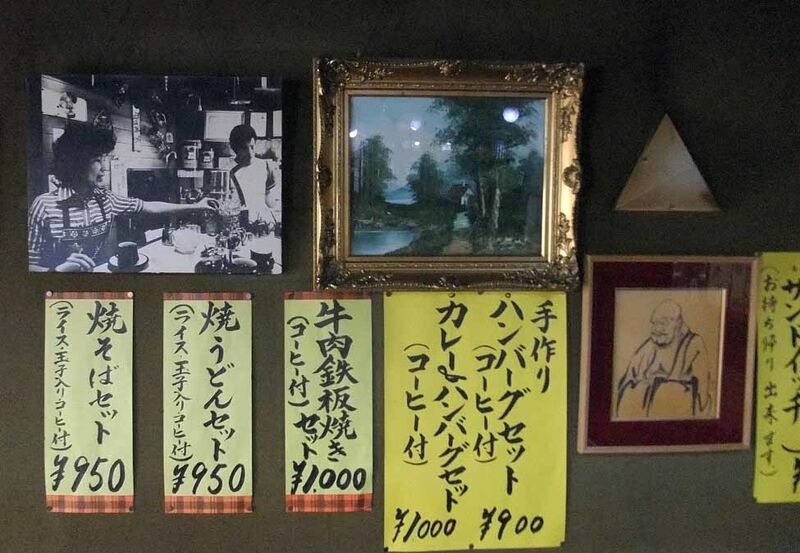 焼そばセット
(ライス・玉子入りコーヒー付)
¥950
焼うどんセット
(ライス・玉子入りコーヒー付)
¥950
牛肉鉄板焼きセット
(コーヒー付)
¥1.000
手作り
ハンバーグセット
(コーヒー付)
¥900
カレー&ハンバーグセット
(コーヒー付)
¥1000
サンドイッチ
(お持ち帰り出来ます)